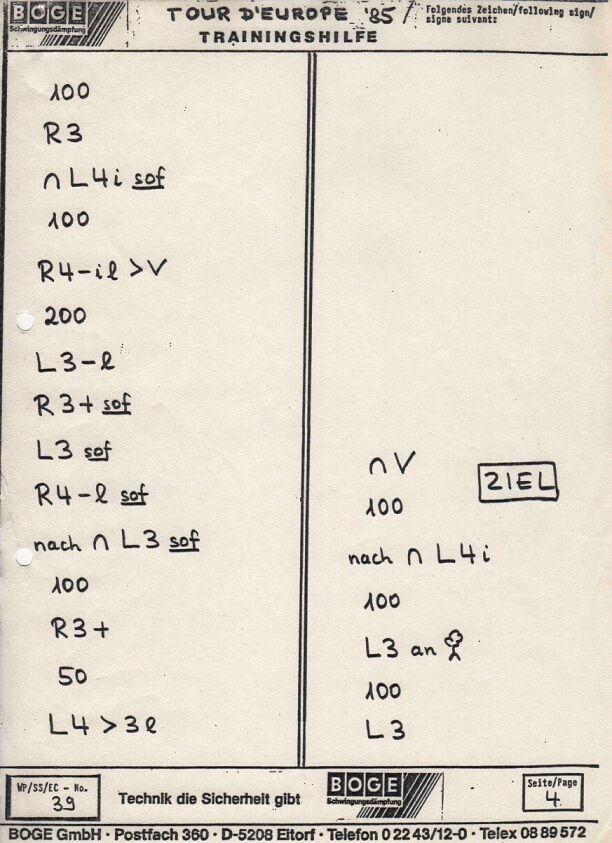 BOGE
Schwingungsdämpfung
TOUR D'EUROPE '85 /
Folgendes Zeichen/following sign/
signe suivant:
TRAININGSHILFE
100
R3
∩ L4i sof
100
R4-il >V
200
L3-l
R3+ sof
L3 sof
R4-l sof
nach ∩ L3 sof
100
R3+
50
L4 > 3l
∩ V
ZIEL
100
nach ∩ L4i
100
L3 an
100
L3
WP/SS/EC - No.
39
Technik die Sicherheit gibt
BOGE
Schwingungsdämpfung
Seite/Page
4
BOGE GmbH · Postfach 360 · D-5208 Eitorf · Telefon 0 22 43/12-0 · Telex 08 89 572